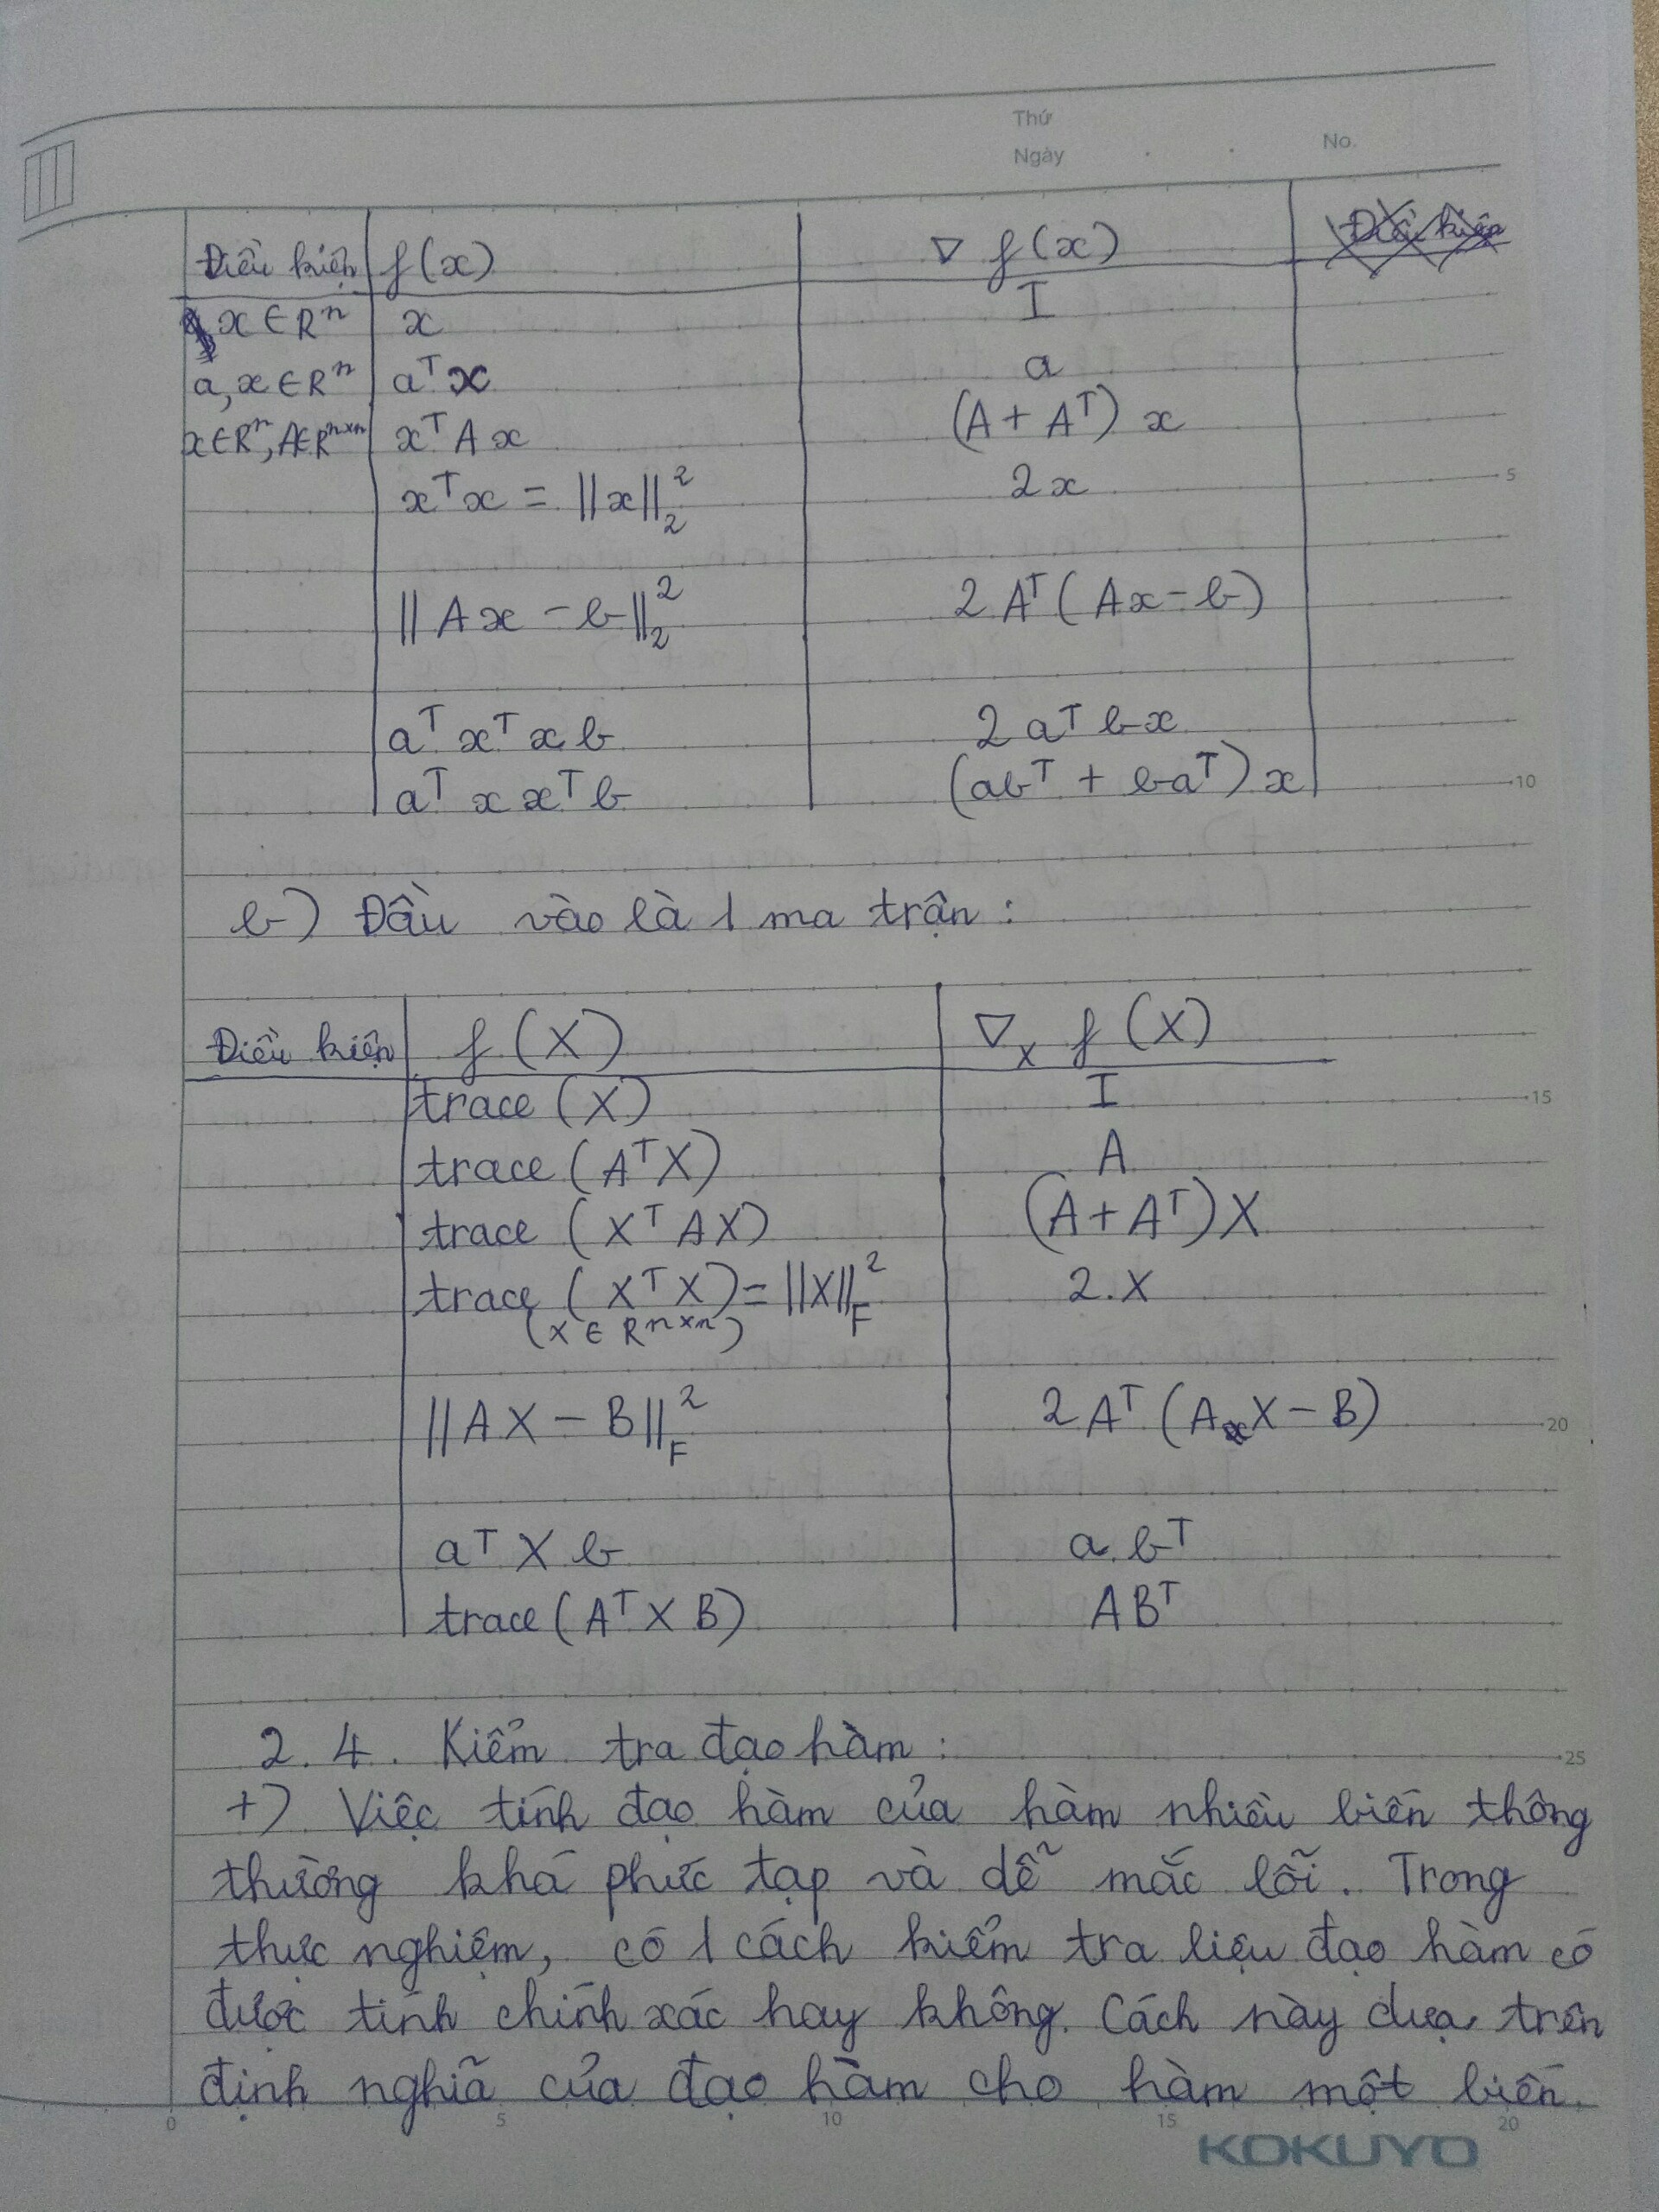 Thứ
Ngày . . No.
Điều kiện f(x) ∇ f(x) Điều kiện
x ∈ Rⁿ x I
a, x ∈ Rⁿ aᵀ x a
x ∈ Rⁿ, A ∈ Rⁿˣⁿ xᵀ A x (A + Aᵀ) x
xᵀ x = ||x||₂² 2x
5
||Ax - b||₂² 2Aᵀ(Ax - b)
aᵀ xᵀ x b 2 aᵀ b x
aᵀ x xᵀ b (abᵀ + baᵀ) x
10
b) Đầu vào là 1 ma trận :
Điều kiện f(X) ∇ₓ f(X)
trace (X) I
15
trace (AᵀX) A
trace (Xᵀ AX) (A + Aᵀ)X
trace (Xᵀ X) = ||X||F² 2.X
(X ∈ Rⁿˣⁿ)
||AX - B||F² 2Aᵀ(AX - B)
20
aᵀ X b a.bᵀ
trace (Aᵀ X B) ABᵀ
2.4. Kiểm tra đạo hàm :
25
+) Việc tính đạo hàm của hàm nhiều biến thông
thường khá phức tạp và dễ mắc lỗi. Trong
thực nghiệm, có 1 cách kiểm tra liệu đạo hàm có
được tính chính xác hay không. Cách này dựa trên
định nghĩa của đạo hàm cho hàm một biến.
0 5 10 15 20
KOKUYO